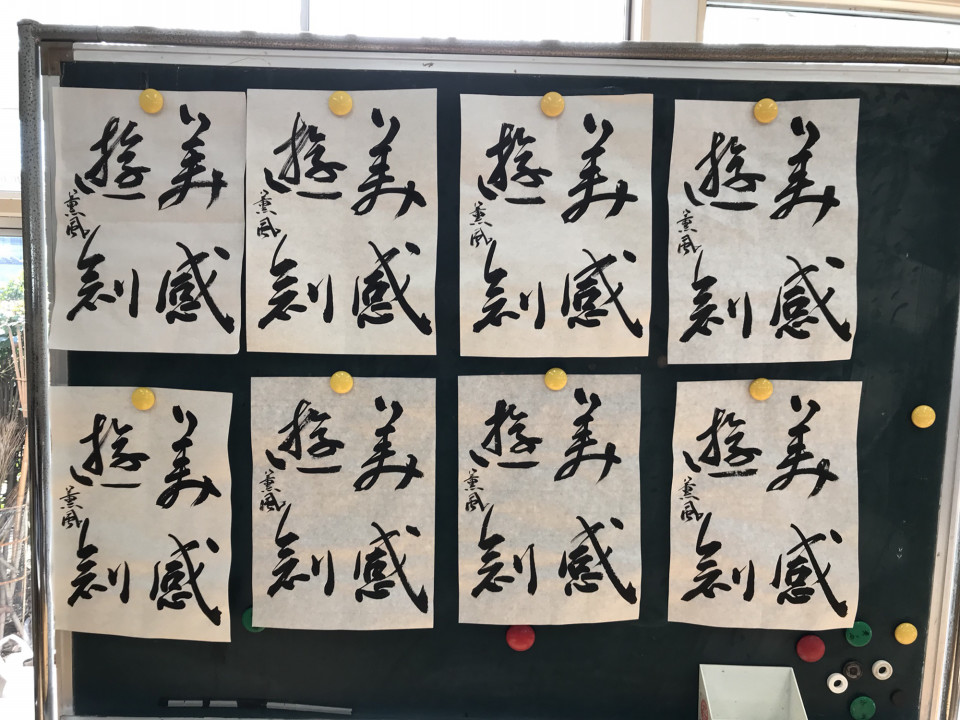 美感
遊創
薫風
美感
遊創
薫風
美感
遊創
薫風
美感
遊創
薫風
美感
遊創
薫風
美感
遊創
薫風
美感
遊創
薫風
美感
遊創
薫風